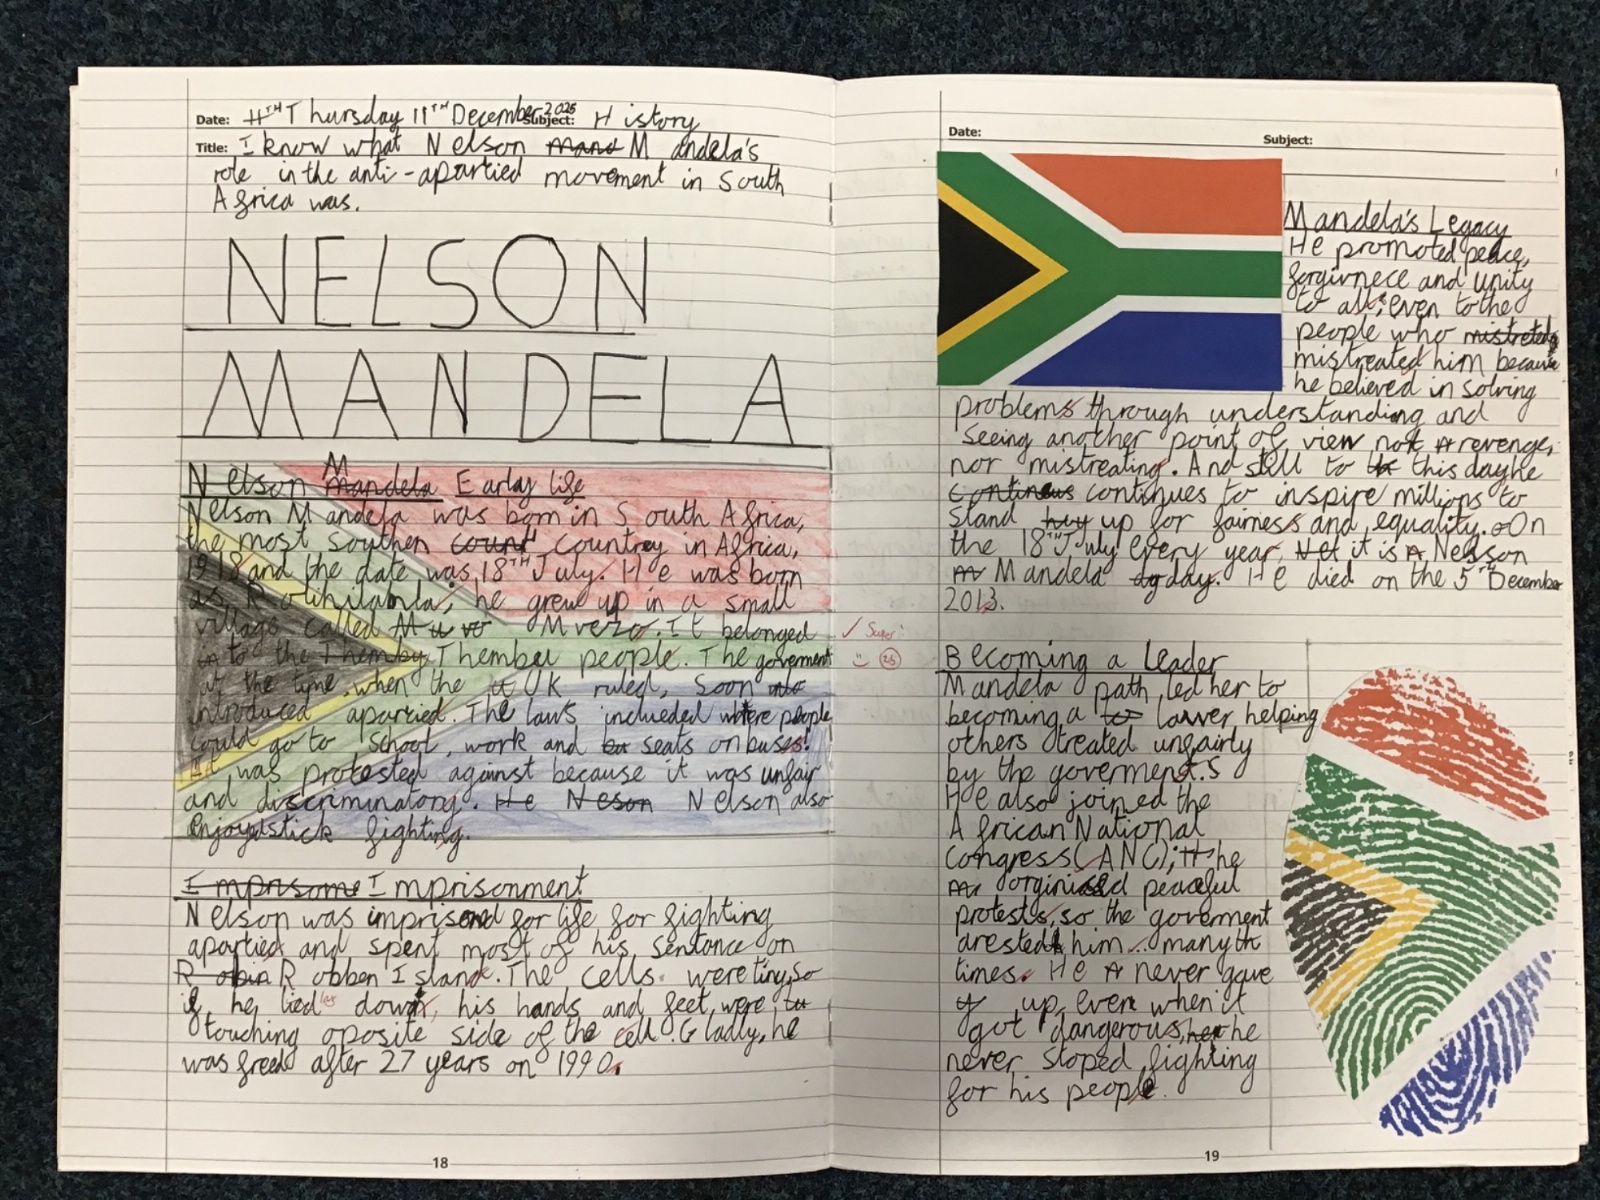 Date: 11TH Thursday 11TH December 2025 Subject: History
Title: I know what Nelson Mand Mandela's
role in the anti-apartied movement in South
Africa was.
NELSON
MANDELA
Nelson Mandela Earlay life
Nelson Mandela was born in South Africa,
the most southen count country in Africa,
1918 and the date was 18TH July. He was born
as Rolihilahla, he grew up in a small
village called Mvezo. It belonged
to the Themby Thembu people. The goverment
at the tyme, when the UK ruled, soon into
introduced apartied. The laws inclueded where people
could go to school, work and seats on buses!
It was protested against because it was unfair
and discriminatory. He Neson Nelson also
enjoyed stick fighting.
Imprisome Imprisonment
Nelson was imprisoned for life for fighting
apartied and spent most of his sentance on
Robin Robben Island. The cells were tiny, so
if he lied down, his hands and feet were
touching oposite side of the cell. Gladly, he
was freed after 27 years on 1990.
Super
18
Date:
Subject:
Mandela's Legacy
He promoted peace,
forgivnece and unity
to all, even to the
people who mistreted
mistreated him because
he believed in solving
problems through understanding and
seeing another point of view not revenge,
nor mistreating. And still to this day he
contineus continues to inspire millions to
stand up for fairness and equality. On
the 18TH July every year it is Nelson
Mandela day. He died on the 5TH December
2013.
Becoming a Leader
Mandela path led her to
becoming a to lawer helping
others treated unfairly
by the goverment.
He also joined the
African National
Congress (ANC); he
orginised peaceful
protests, so the goverment
arested him many
times. He never gave
up, even when it
got dangerous, he
never stoped fighting
for his people.
19